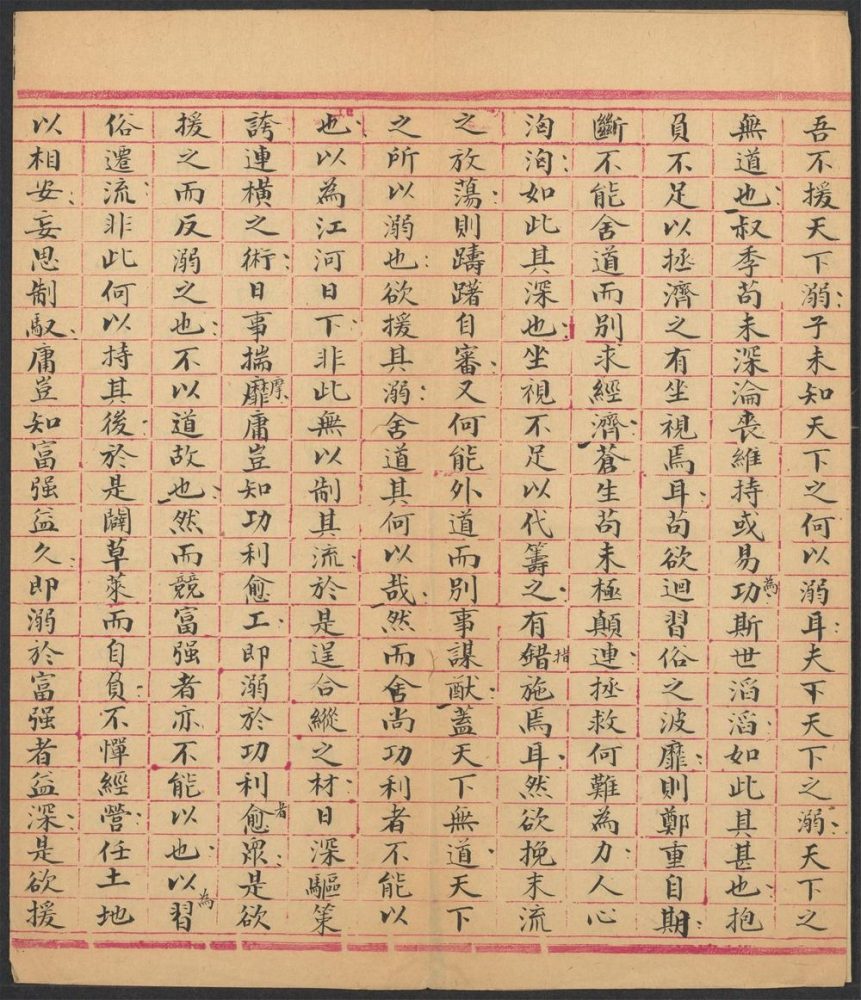 吾不援天下溺子未知天下之何以溺耳夫下天下之溺天下之
無道也叔季苟未深淪喪維持或易為功斯世滔滔如此其甚也抱
負不足以拯濟之有坐視焉耳苟欲迴習俗之波靡則鄭重自期
斷不能舍道而別求經濟蒼生苟未極顛連拯救何難為力人心
洶洶如此其深也坐視不足以代籌之有錯措施焉耳然欲挽末流
之放蕩則躊躇自審又何能外道而別事謀猷蓋天下無道天下
之所以溺也欲援其溺舍道其何以哉然而舍尚功利者不能以
也以為江河日下非此無以制其流於是逞合縱之材日深驅策
誇連橫之術日事揣靡摩庸豈知功利愈工即溺於功利者愈眾是欲
援之而反溺之也不以道故也然而競富强者亦不能以也以為習
俗遷流非此何以持其後於是闢草萊而自負不憚經營任土地
以相安妄思制馭庸豈知富强益久即溺於富强者益深是欲援